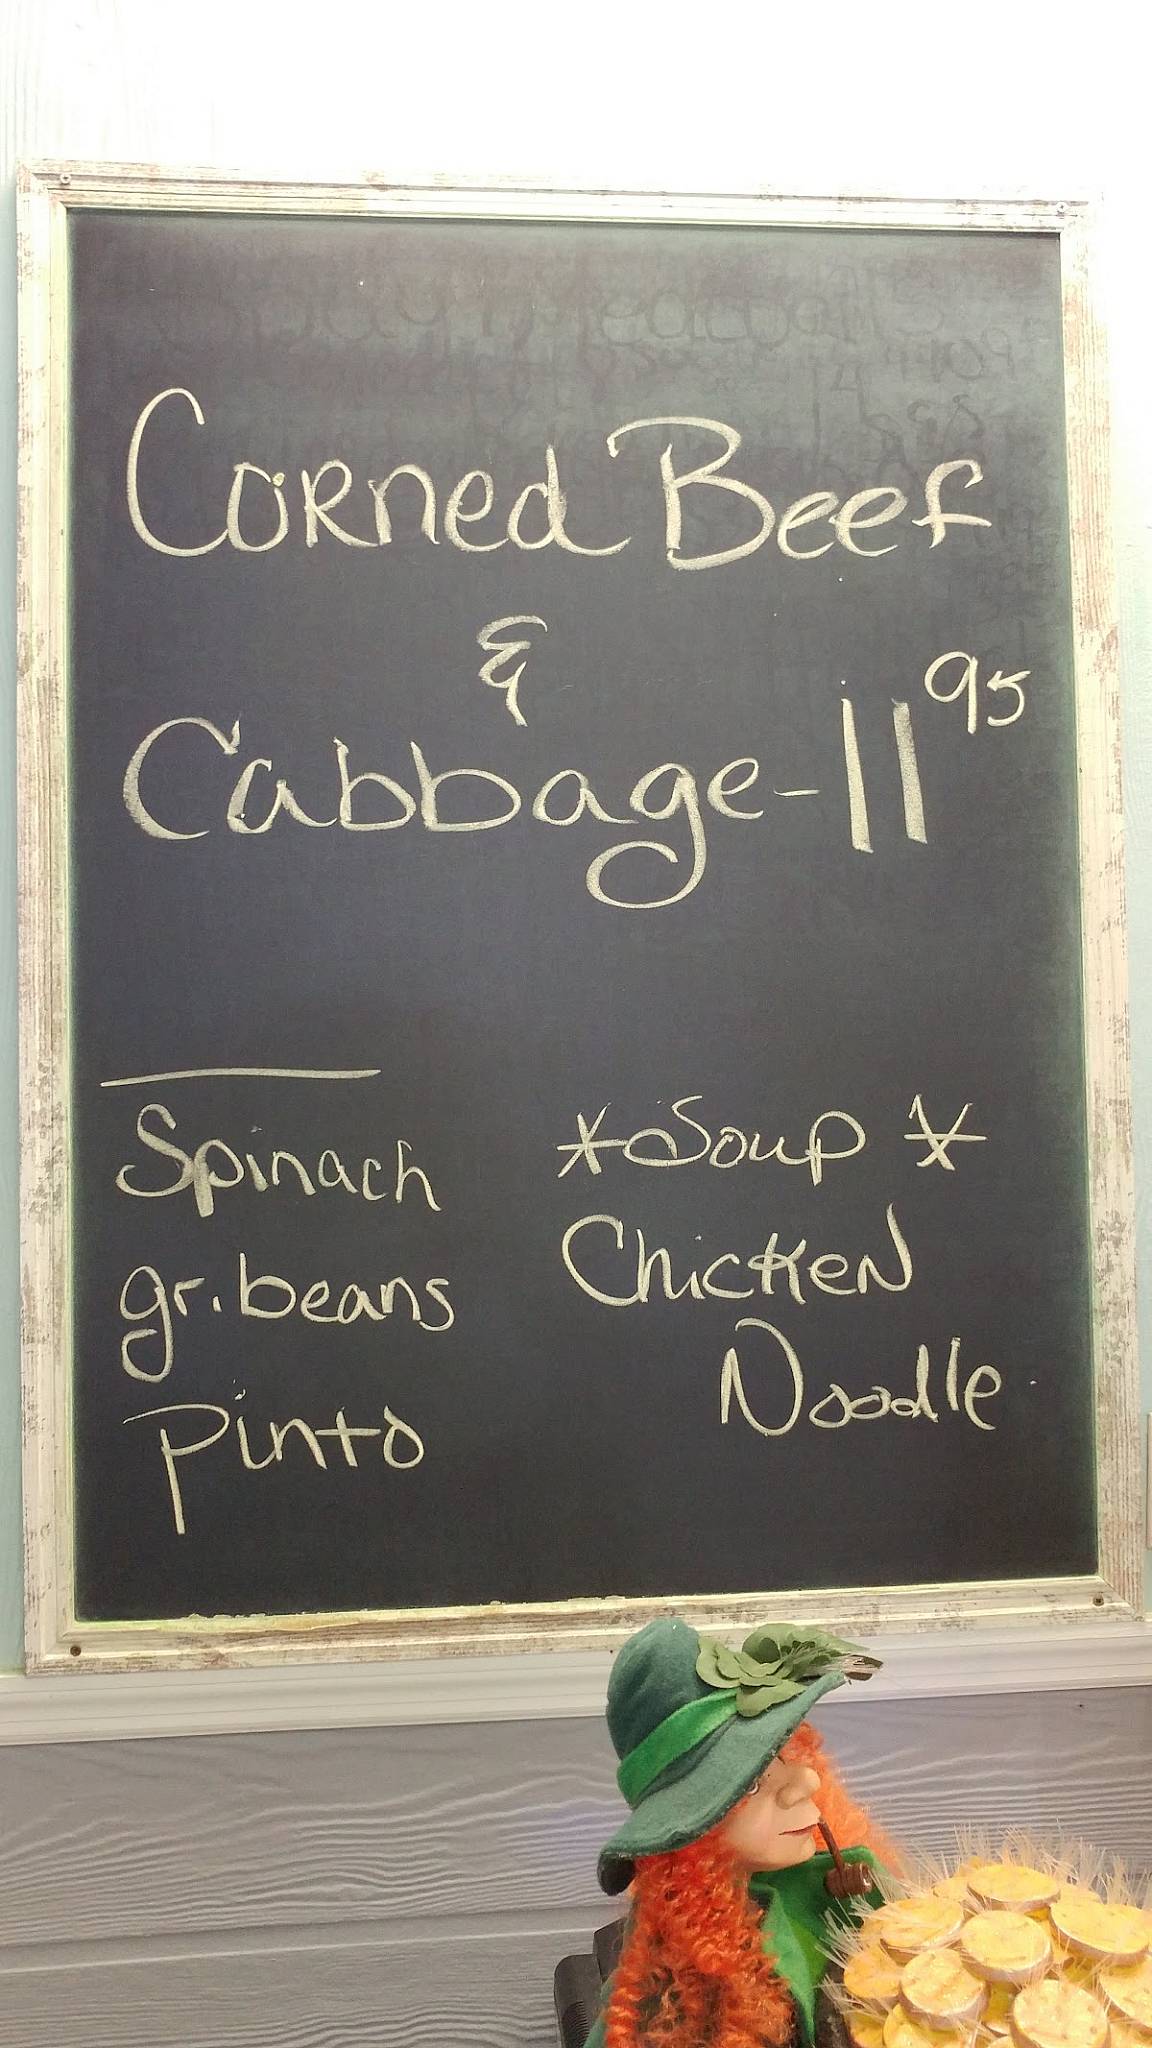 Corned Beef
&
Cabbage - 11 95
Spinach
gr. beans
pinto
* Soup *
Chicken
Noodle